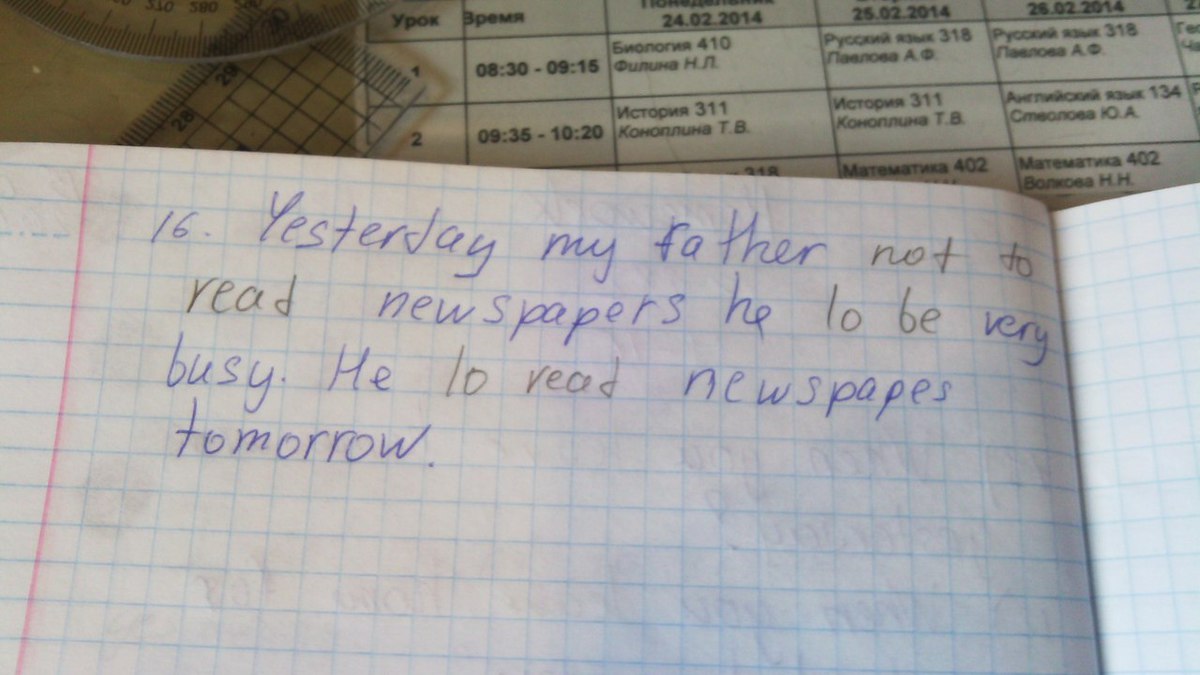 Урок Время Понедельник
24.02.2014 25.02.2014 26.02.2014
1 08:30 - 09:15 Биология 410 Русский язык 318 Русский язык 318
Филина Н.Л. Павлова А.Ф. Павлова А.Ф.
2 09:35 - 10:20 История 311 История 311 Английский язык 134
Коноплина Т.В. Коноплина Т.В. Стволова Ю.А.
318 Математика 402 Математика 402
Волкова Н.Н.
29
28
16. Yesterday my father not to
read newspapers he to be very
busy. He to read newspapes
tomorrow.